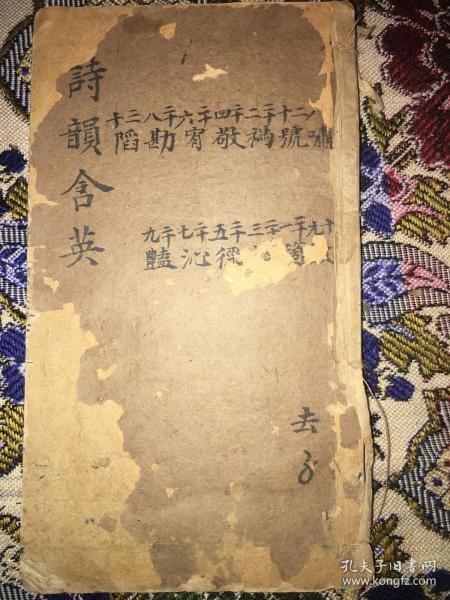 八嘯
二十號
二十二禡
二十四敬
二十六宥
二十八勘
三十陷
十九
二十一箇
二十三
二十五徑
二十七沁
二十九豔
詩韻含英
去
孔夫子旧书网
www.kongfz.com